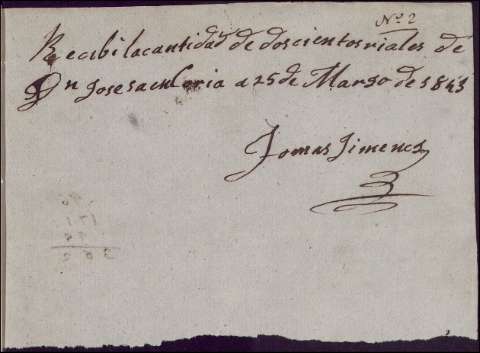 Nº 2
Recibi la cantidad de doscientos riales de
Dn Jose sa en Coria a 25 de Marzo de 1843
Tomas Jimenez